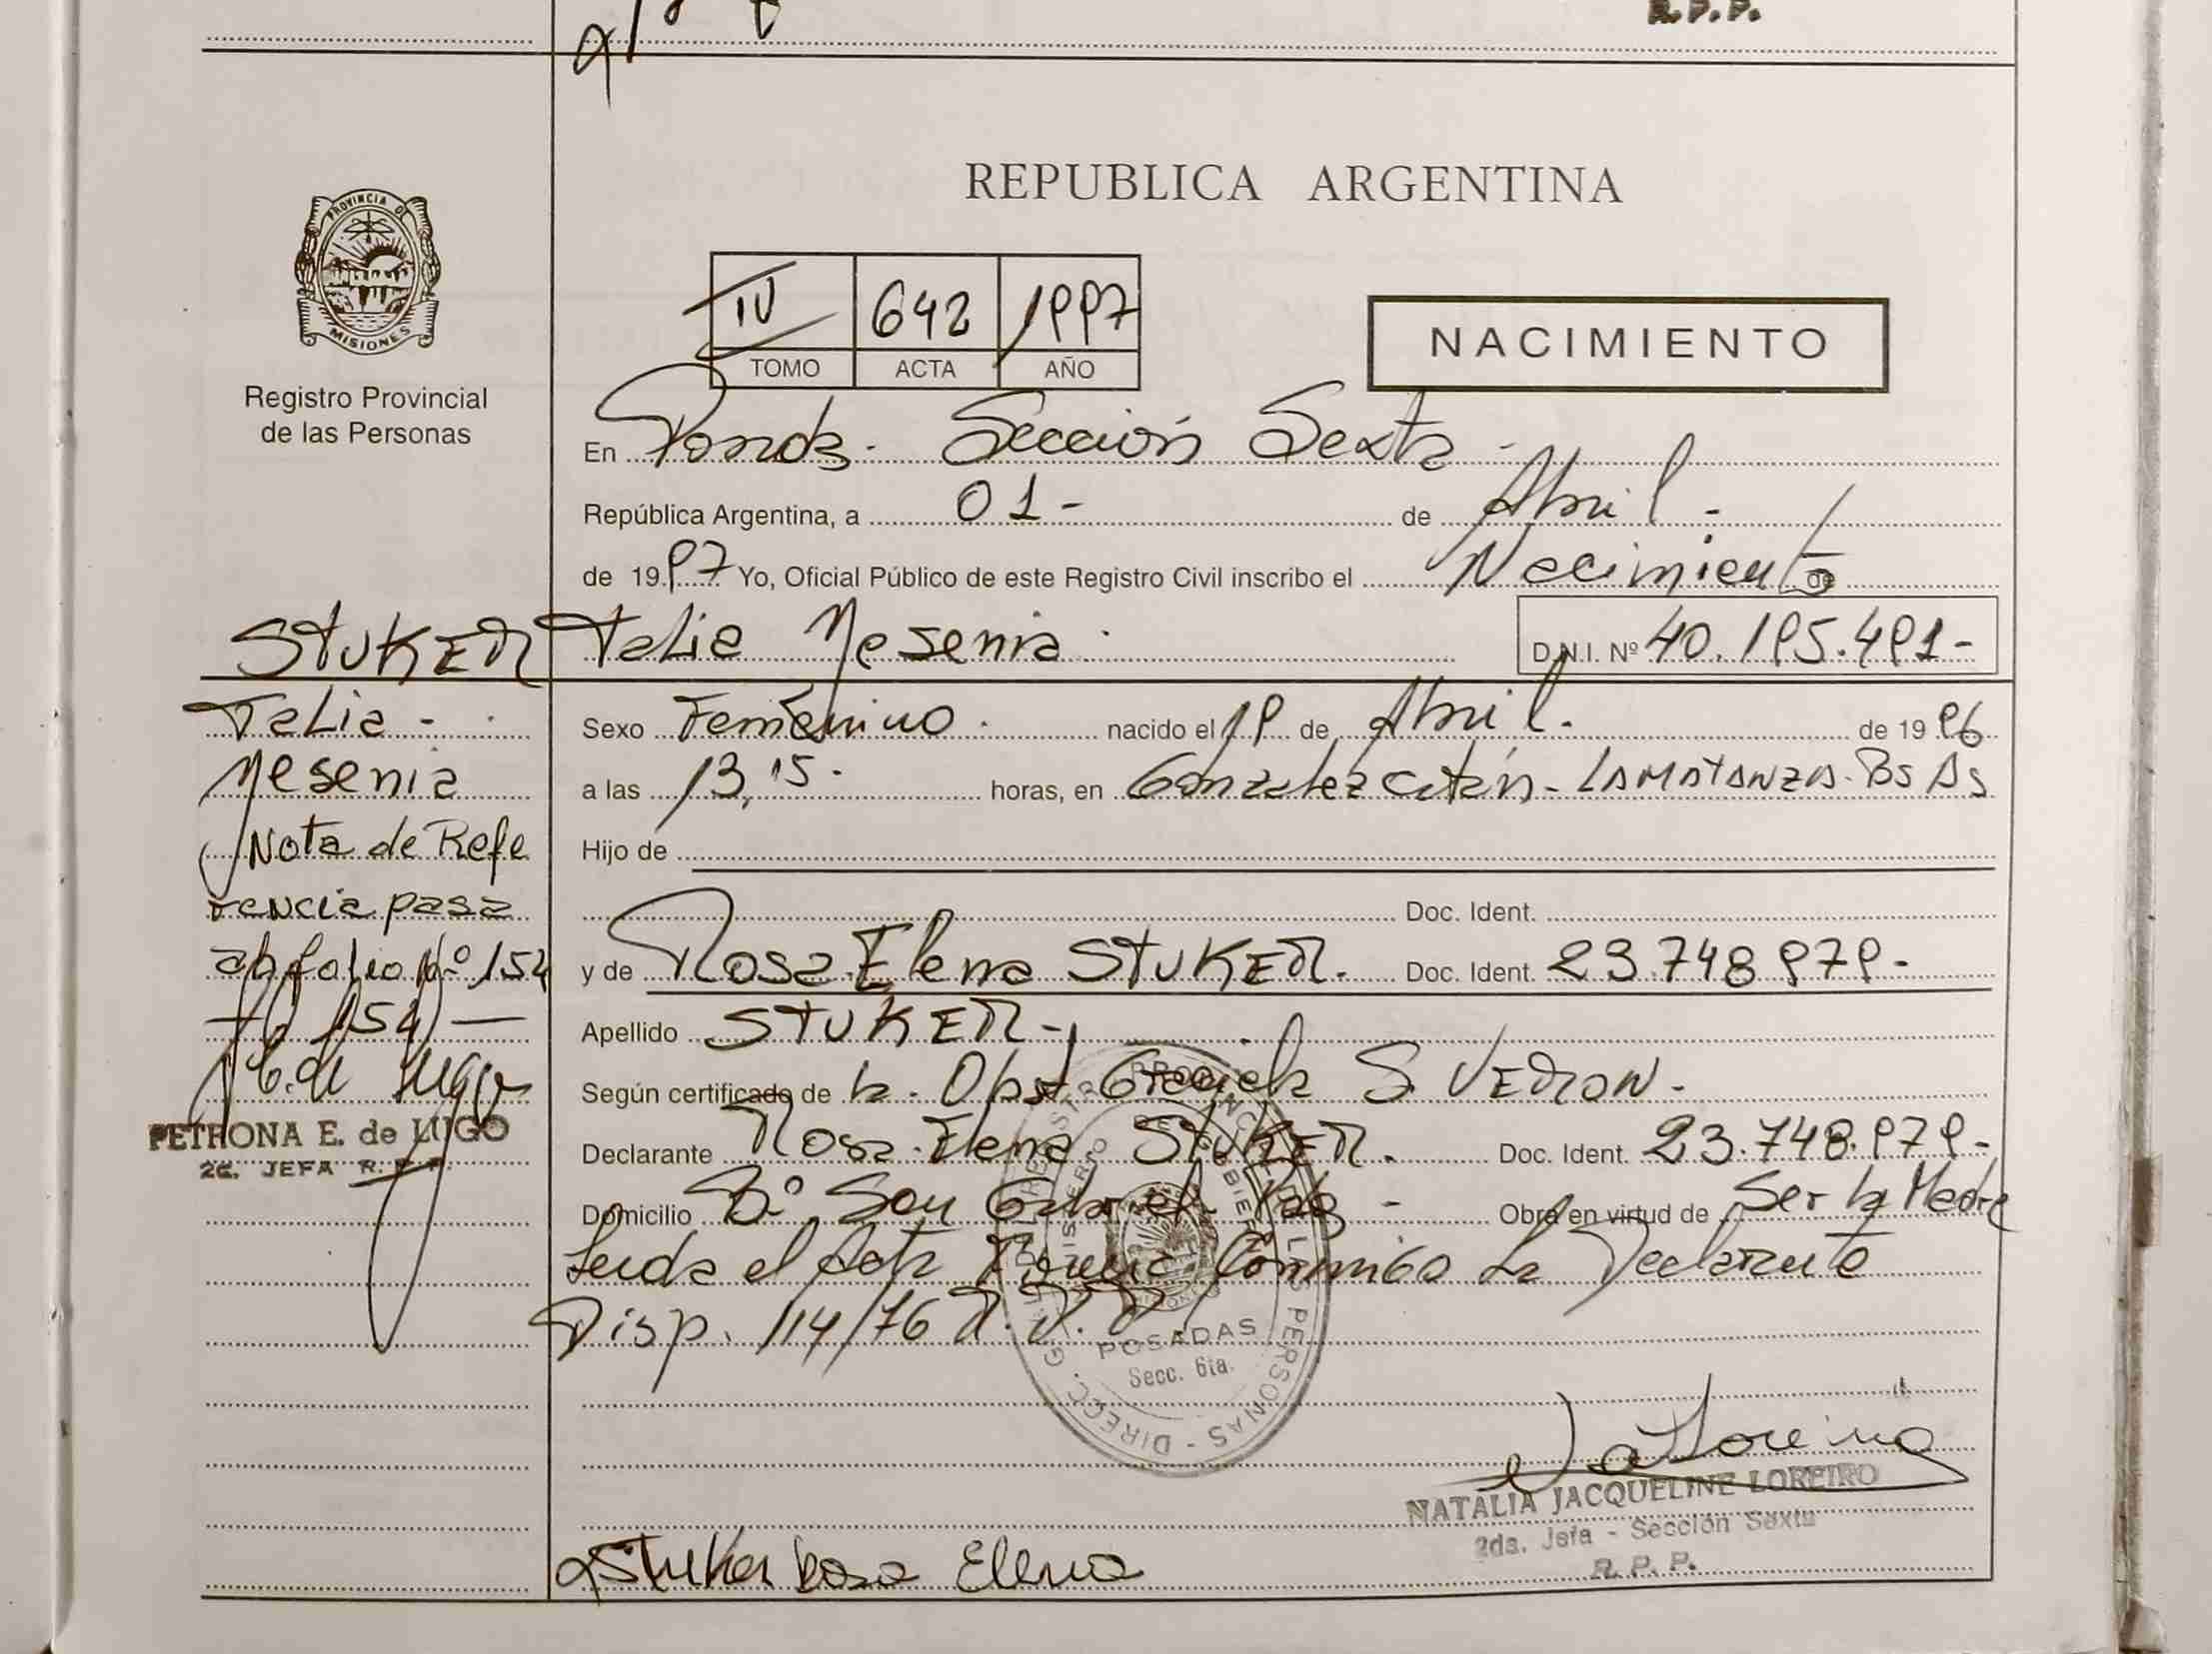 R.P.P.
PROVINCIA DE
MISIONES
Registro Provincial
de las Personas
REPUBLICA ARGENTINA
IV 642 1997
TOMO ACTA AÑO
NACIMIENTO
En Posadas - Sección Sexta -
República Argentina, a 01- de Abril -
de 1997 Yo, Oficial Público de este Registro Civil inscribo el Nacimiento de
STUKER Talia Yesenia. D.N.I. Nº 40.195.491-
Talia -
Yesenia
Nota de Refe
rencia pasa
al folio Nº 154
154 —
PETRONA E. de LUGO
2da. JEFA R.P.P.
Sexo Femenino. nacido el 19 de Abril. de 1996
a las 13,15. horas, en Gonzalez Catán - LA MATANZA - Bs As
Hijo de
Doc. Ident.
y de Rosa Elena STUKER. Doc. Ident. 23.748.979-
Apellido STUKER-
Según certificado de la Obst. Graciela S. VERON-
Declarante Rosa Elena STUKER. Doc. Ident. 23.748.979-
Domicilio Bº San Gabriel Pdas - Obra en virtud de Ser la Madre
Leida el Acta Firma Conmigo La Declarante
Disp. 114/76 R.P.P.
POSADAS
Secc. 6ta.
NATALIA JACQUELINE LOREIRO
2da. Jefa - Sección Sexta
R.P.P.
Stuker Rosa Elena